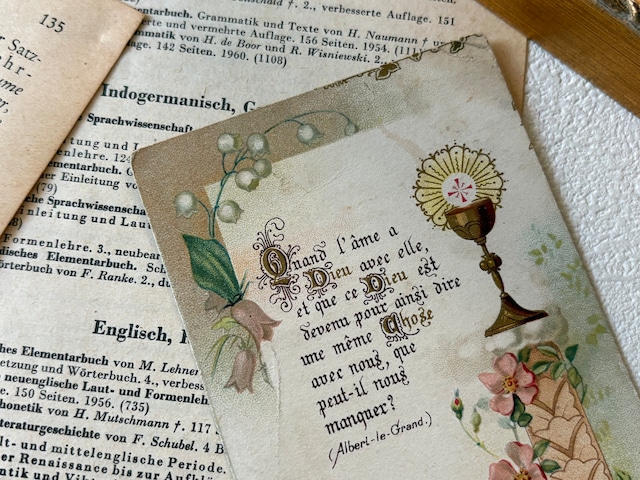 135
r Satz-
ehr-
ume
ter,
†. 2., verbesserte Auflage. 151
ementarbuch. Grammatik und Texte von H. Naumann †
erte und vermehrte Auflage. 156 Seiten. 1954. (111
mmatik von H. de Boor und R. Wisniewski. 2.,
lage. 142 Seiten. 1960. (1108)
Indogermanisch, G
Sprachwissenschaft
tung und L
enlehre. 124
ementarbuch.
er Einleitung v
(79)
che Sprachwissenschaf
inleitung und Lau
8)
Formenlehre. 3., neubear
disches Elementarbuch. Sch
örterbuch von F. Ranke. 2., du
Englisch,
ches Elementarbuch von M. Lehner
etzung und Wörterbuch. 4., verbess
neuenglische Laut- und Formenleh
. 150 Seiten. 1956. (735)
honetik von H. Mutschmann †. 117
teraturgeschichte von F. Schubel. 4 B
lt- und mittelenglische Periode.
er Renaissance bis zur Aufklä
ntik und Vik
Quand l'âme a
Dieu avec elle,
et que ce Dieu est
devenu pour ainsi dire
une même Chose
avec nous, que
peut-il nous
manquer?
(Albert-le-Grand.)